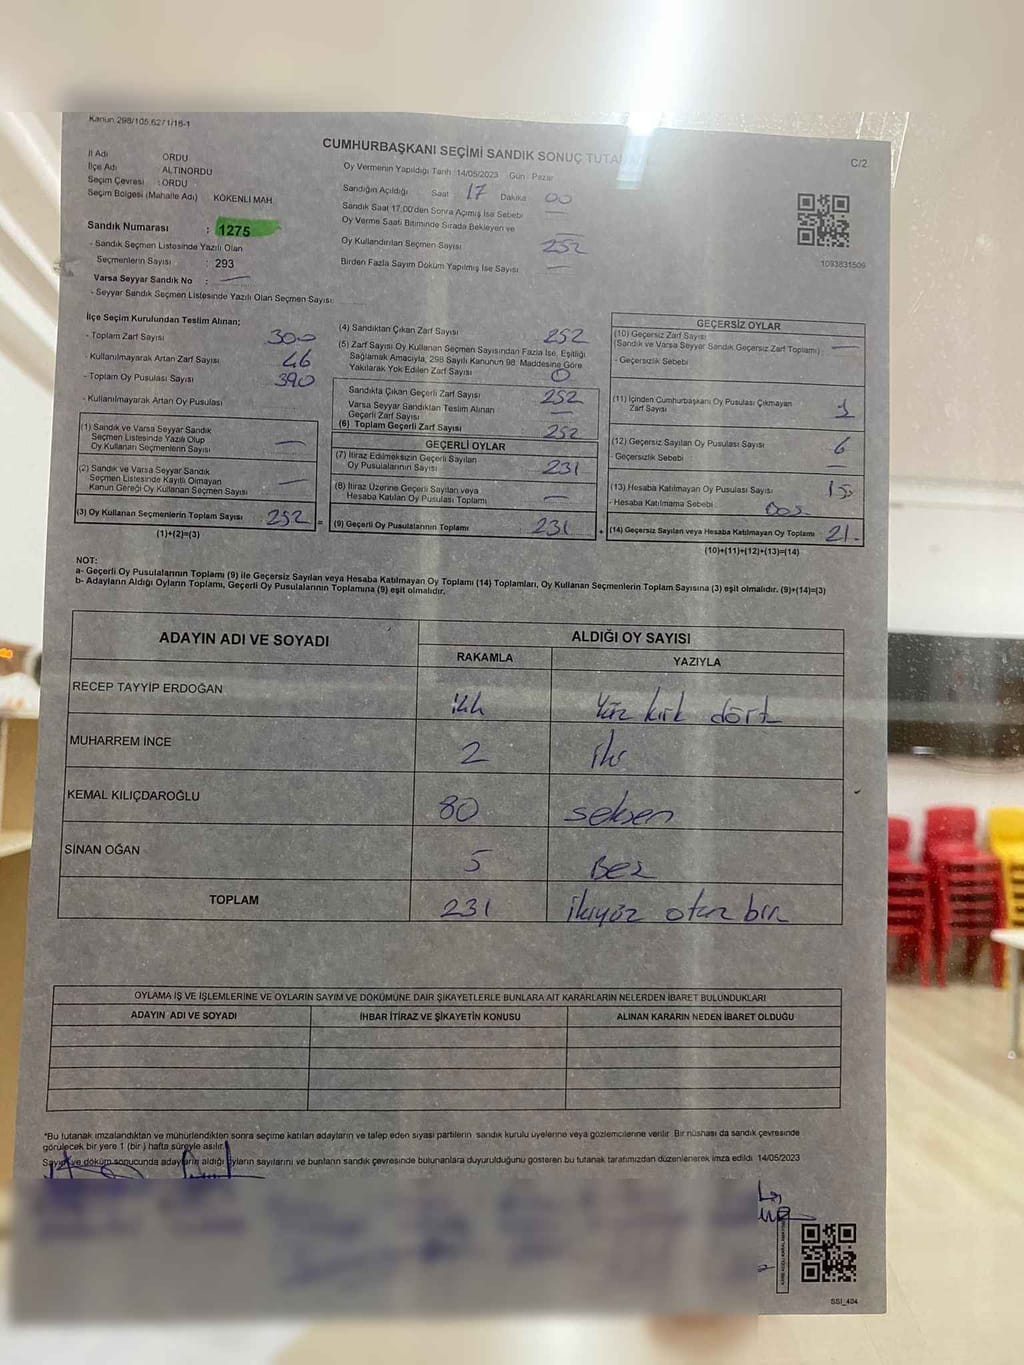 Kanun 298/105,6271/16-1
CUMHURBAŞKANI SEÇİMİ SANDIK SONUÇ
C/2
İl Adı ORDU
İlçe Adı ALTINORDU
Seçim Çevresi : ORDU
Seçim Bölgesi (Mahalle Adı) KÖKENLİ MAH.
Sandık Numarası : 1275
- Sandık Seçmen Listesinde Yazılı Olan
Seçmenlerin Sayısı : 293
Varsa Seyyar Sandık No : —
- Seyyar Sandık Seçmen Listesinde Yazılı Olan Seçmen Sayısı:
Oy Vermenin Yapıldığı Tarih 14/05/2023 Gün : Pazar
Sandığın Açıldığı Saat 17 Dakika 00
Sandık Saat 17.00'den Sonra Açılmış İse Sebebi —
Oy Verme Saati Bitiminde Sırada Bekleyen ve
Oy Kullandırılan Seçmen Sayısı 252
Birden Fazla Sayım Döküm Yapılmış İse Sayısı —
1093831509
İlçe Seçim Kurulundan Teslim Alınan;
- Toplam Zarf Sayısı 300
- Kullanılmayarak Artan Zarf Sayısı 46
- Toplam Oy Pusulası Sayısı 390
- Kullanılmayarak Artan Oy Pusulası
(1) Sandık ve Varsa Seyyar Sandık
Seçmen Listesinde Yazılı Olup
Oy Kullanan Seçmenlerin Sayısı —
(2) Sandık ve Varsa Seyyar Sandık
Seçmen Listesinde Kayıtlı Olmayan
Kanun Gereği Oy Kullanan Seçmen Sayısı —
(3) Oy Kullanan Seçmenlerin Toplam Sayısı 252 =
(1)+(2)=(3)
(4) Sandıktan Çıkan Zarf Sayısı 252
(5) Zarf Sayısı Oy Kullanan Seçmen Sayısından Fazla İse, Eşitliği
Sağlamak Amacıyla, 298 Sayılı Kanunun 98. Maddesine Göre
Yakılarak Yok Edilen Zarf Sayısı 0
Sandıkta Çıkan Geçerli Zarf Sayısı 252
Varsa Seyyar Sandıktan Teslim Alınan
Geçerli Zarf Sayısı —
(6) Toplam Geçerli Zarf Sayısı 252
GEÇERLİ OYLAR
(7) İtiraz Edilmeksizin Geçerli Sayılan
Oy Pusulalarının Sayısı 231
(8) İtiraz Üzerine Geçerli Sayılan veya
Hesaba Katılan Oy Pusulası Toplamı —
(9) Geçerli Oy Pusulalarının Toplamı 231 +
GEÇERSİZ OYLAR
(10) Geçersiz Zarf Sayısı
(Sandık ve Varsa Seyyar Sandık Geçersiz Zarf Toplamı) —
- Geçersizlik Sebebi
(11) İçinden Cumhurbaşkanı Oy Pusulası Çıkmayan
Zarf Sayısı
(12) Geçersiz Sayılan Oy Pusulası Sayısı 6
Geçersizlik Sebebi —
(13) Hesaba Katılmayan Oy Pusulası Sayısı
- Hesaba Katılmama Sebebi Boş
(14) Geçersiz Sayılan veya Hesaba Katılmayan Oy Toplamı 21
(10)+(11)+(12)+(13)=(14)
NOT:
a- Geçerli Oy Pusulalarının Toplamı (9) ile Geçersiz Sayılan veya Hesaba Katılmayan Oy Toplamı (14) Toplamları, Oy Kullanan Seçmenlerin Toplam Sayısına (3) eşit olmalıdır. (9)+(14)=(3)
b- Adayların Aldığı Oyların Toplamı, Geçerli Oy Pusulalarının Toplamına (9) eşit olmalıdır.
ADAYIN ADI VE SOYADI ALDIĞI OY SAYISI
RAKAMLA YAZIYLA
RECEP TAYYİP ERDOĞAN 144 Yüz kırk dört
MUHARREM İNCE 2 iki
KEMAL KILIÇDAROĞLU 80 seksen
SİNAN OĞAN 5 Beş
TOPLAM 231 ikiyüz otuz bir
OYLAMA İŞ VE İŞLEMLERİNE VE OYLARIN SAYIM VE DÖKÜMÜNE DAİR ŞİKAYETLERLE BUNLARA AİT KARARLARIN NELERDEN İBARET BULUNDUKLARI
ADAYIN ADI VE SOYADI İHBAR İTİRAZ VE ŞİKAYETİN KONUSU ALINAN KARARIN NEDEN İBARET OLDUĞU
*Bu tutanak imzalandıktan ve mühürlendikten sonra seçime katılan adayların ve talep eden siyasi partilerin sandık kurulu üyelerine veya gözlemcilerine verilir. Bir nüshası da sandık çevresinde
görülecek bir yere 1 (bir) hafta süreyle asılır.
Sayım ve döküm sonucunda adayların aldığı oyların sayılarını ve bunların sandık çevresinde bulunanlara duyurulduğunu gösteren bu tutanak tarafımızdan düzenlenerek imza edildi. 14/05/2023
SSI_404